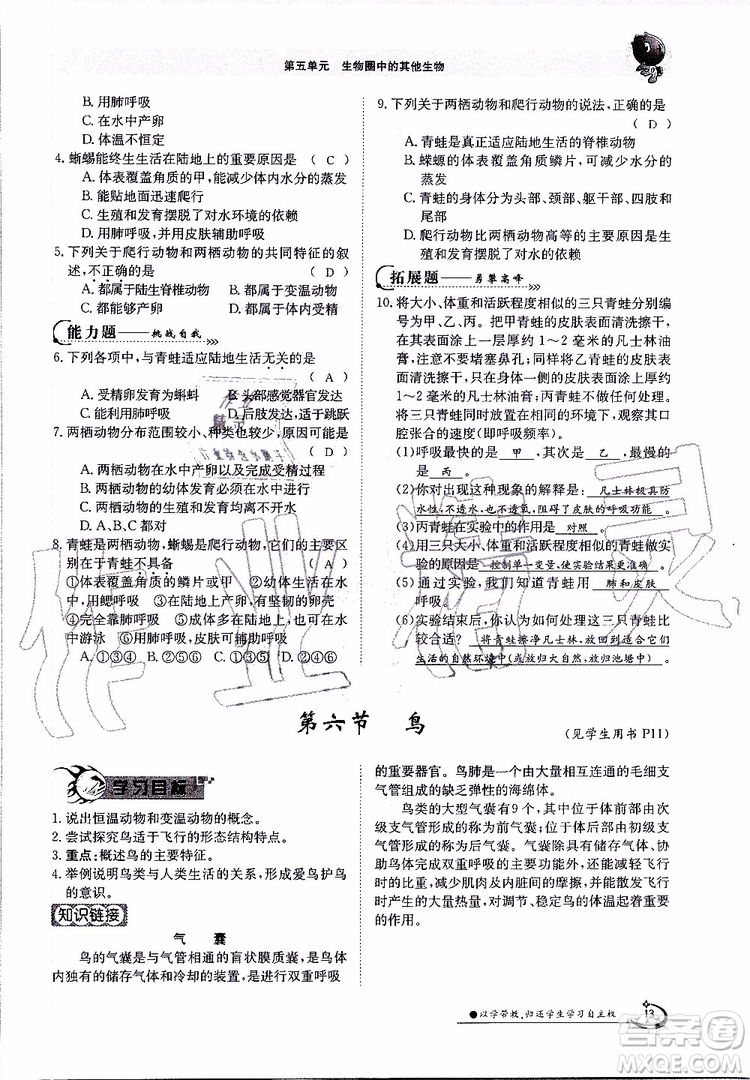 第五单元 生物圈中的其他生物
B. 用肺呼吸
C. 在水中产卵
D. 体温不恒定
4. 蜥蜴能终生生活在陆地上的重要原因是 （ C ）
A. 体表覆盖角质的甲,能减少水分的蒸发
B. 能贴地面迅速爬行
C. 生殖和发育摆脱了对水环境的依赖
D. 用肺呼吸,并用皮肤辅助呼吸
5. 下列关于爬行动物和两栖动物的共同特征的叙
述,不正确的是 （ D ）
A. 都属于陆生脊椎动物 B. 都属于变温动物
C. 都能够产卵 D. 都用肺和皮肤呼吸
能力题 挑战自我
6. 下列各项中,与青蛙适应陆地生活无关的是
（ A ）
A. 受精卵发育为蝌蚪 B. 头部感觉器官发达
C. 用肺呼吸 D. 后肢发达,适于跳跃
7. 两栖动物分布范围较小、种类也较少,原因是
（ D ）
A. 两栖动物在水中产卵以及完成受精过程
B. 两栖动物的幼体发育必须在水中进行
C. 两栖动物的生殖和发育均离不开水
D. A、B、C都对
8. 青蛙是两栖动物,蜥蜴是爬行动物,它们的主要区
别在于青蛙不具备 （ A ）
①体表覆盖角质的鳞片或甲 ②体内有脊柱
③用鳃呼吸 ④生殖时产的卵有坚韧的卵壳
⑤完全靠肺呼吸 ⑥成体大多在陆地上,少数在水
中游泳 ⑥用肺呼吸,皮肤可辅助呼吸
A. ①③④ B. ②⑤⑥ C. ①④⑤ D. ③④⑤
9. 下列关于两栖动物和爬行动物的说法,正确的是
（ D ）
A. 青蛙是真正适应陆地生活的脊椎动物
B. 蝾螈的体表覆盖角质鳞片,可以减少水分的
蒸发
C. 青蛙的身体分为头部、颈部、躯干部、四肢和
尾部
D. 爬行动物比两栖动物高等的主要原因是生
殖和发育摆脱了对水环境的依赖
拓展题 勇攀高峰
10. 将大小、体重和活跃程度相似的三只青蛙分别编
号为甲、乙、丙。把甲青蛙的皮肤面清洗擦干,并
在其表面涂上一层厚约1～2毫米的凡士林油
膏,注意不要堵塞鼻孔;同样将乙青蛙的皮肤面
清洗擦干,在其身体一侧的皮肤上涂一层厚约
1～2毫米的凡士林油膏;丙青蛙不做任何处理。
将三只青蛙同时放置在相同的环境下,观察其口
腔张合的速度(即呼吸频率)。
(1)呼吸最快的是 甲 ,其次是 乙 ,最慢的
是 丙 。
(2)你对出现这种现象的解释是:凡士林极具防
水性,不透水,也不透氧,阻碍了皮肤的呼吸功能 。
(3)丙青蛙在实验中的作用是 对照 。
(4)用三只大小、体重和活跃程度相似的青蛙做实
验的原因是 控制单一变量,使实验结果更准确 。
(5)通过实验,我们知道青蛙用 肺和皮肤
呼吸。
(6)实验结束后,你认为如何处理这三只青蛙
比较合适? 将青蛙擦净凡士林,放回适合它们
生活的自然环境中(或放归大自然,放归池塘中) 。
第六节 鸟
(见学生用书 P11)
学习目标
1. 说出恒温动物和变温动物的概念。
2. 尝试探究鸟适于飞行的形态结构特点。
3. 重点:概述鸟的主要特征。
4. 举例说明鸟类与人类生活的关系,形成爱鸟护鸟
的意识。
知识链接
气 囊
鸟的气囊是与气管相通的盲状膜质囊,是鸟体
内的储存气体和冷却的装置,是进行双重呼吸
的重要器官。鸟肺是一由大量相互连通的毛细支
气管组成的缺乏弹性的海绵体。
鸟类的大型气囊有9个,其中由中支气管形
成的称为后气囊,由次级支气管形成的称为前气囊。气囊除具有储存气体、协
助鸟体完成双重呼吸的主要功能外,还能减轻鸟体
的比重,减少肌肉及内脏间的摩擦,并能扩散飞行时产
生的大量热量,可起到调节、稳定鸟的体温等非常重要
的作用。
以学带教,归还学生学习自主权
13
答案圈
MXQE.COM
作业精灵